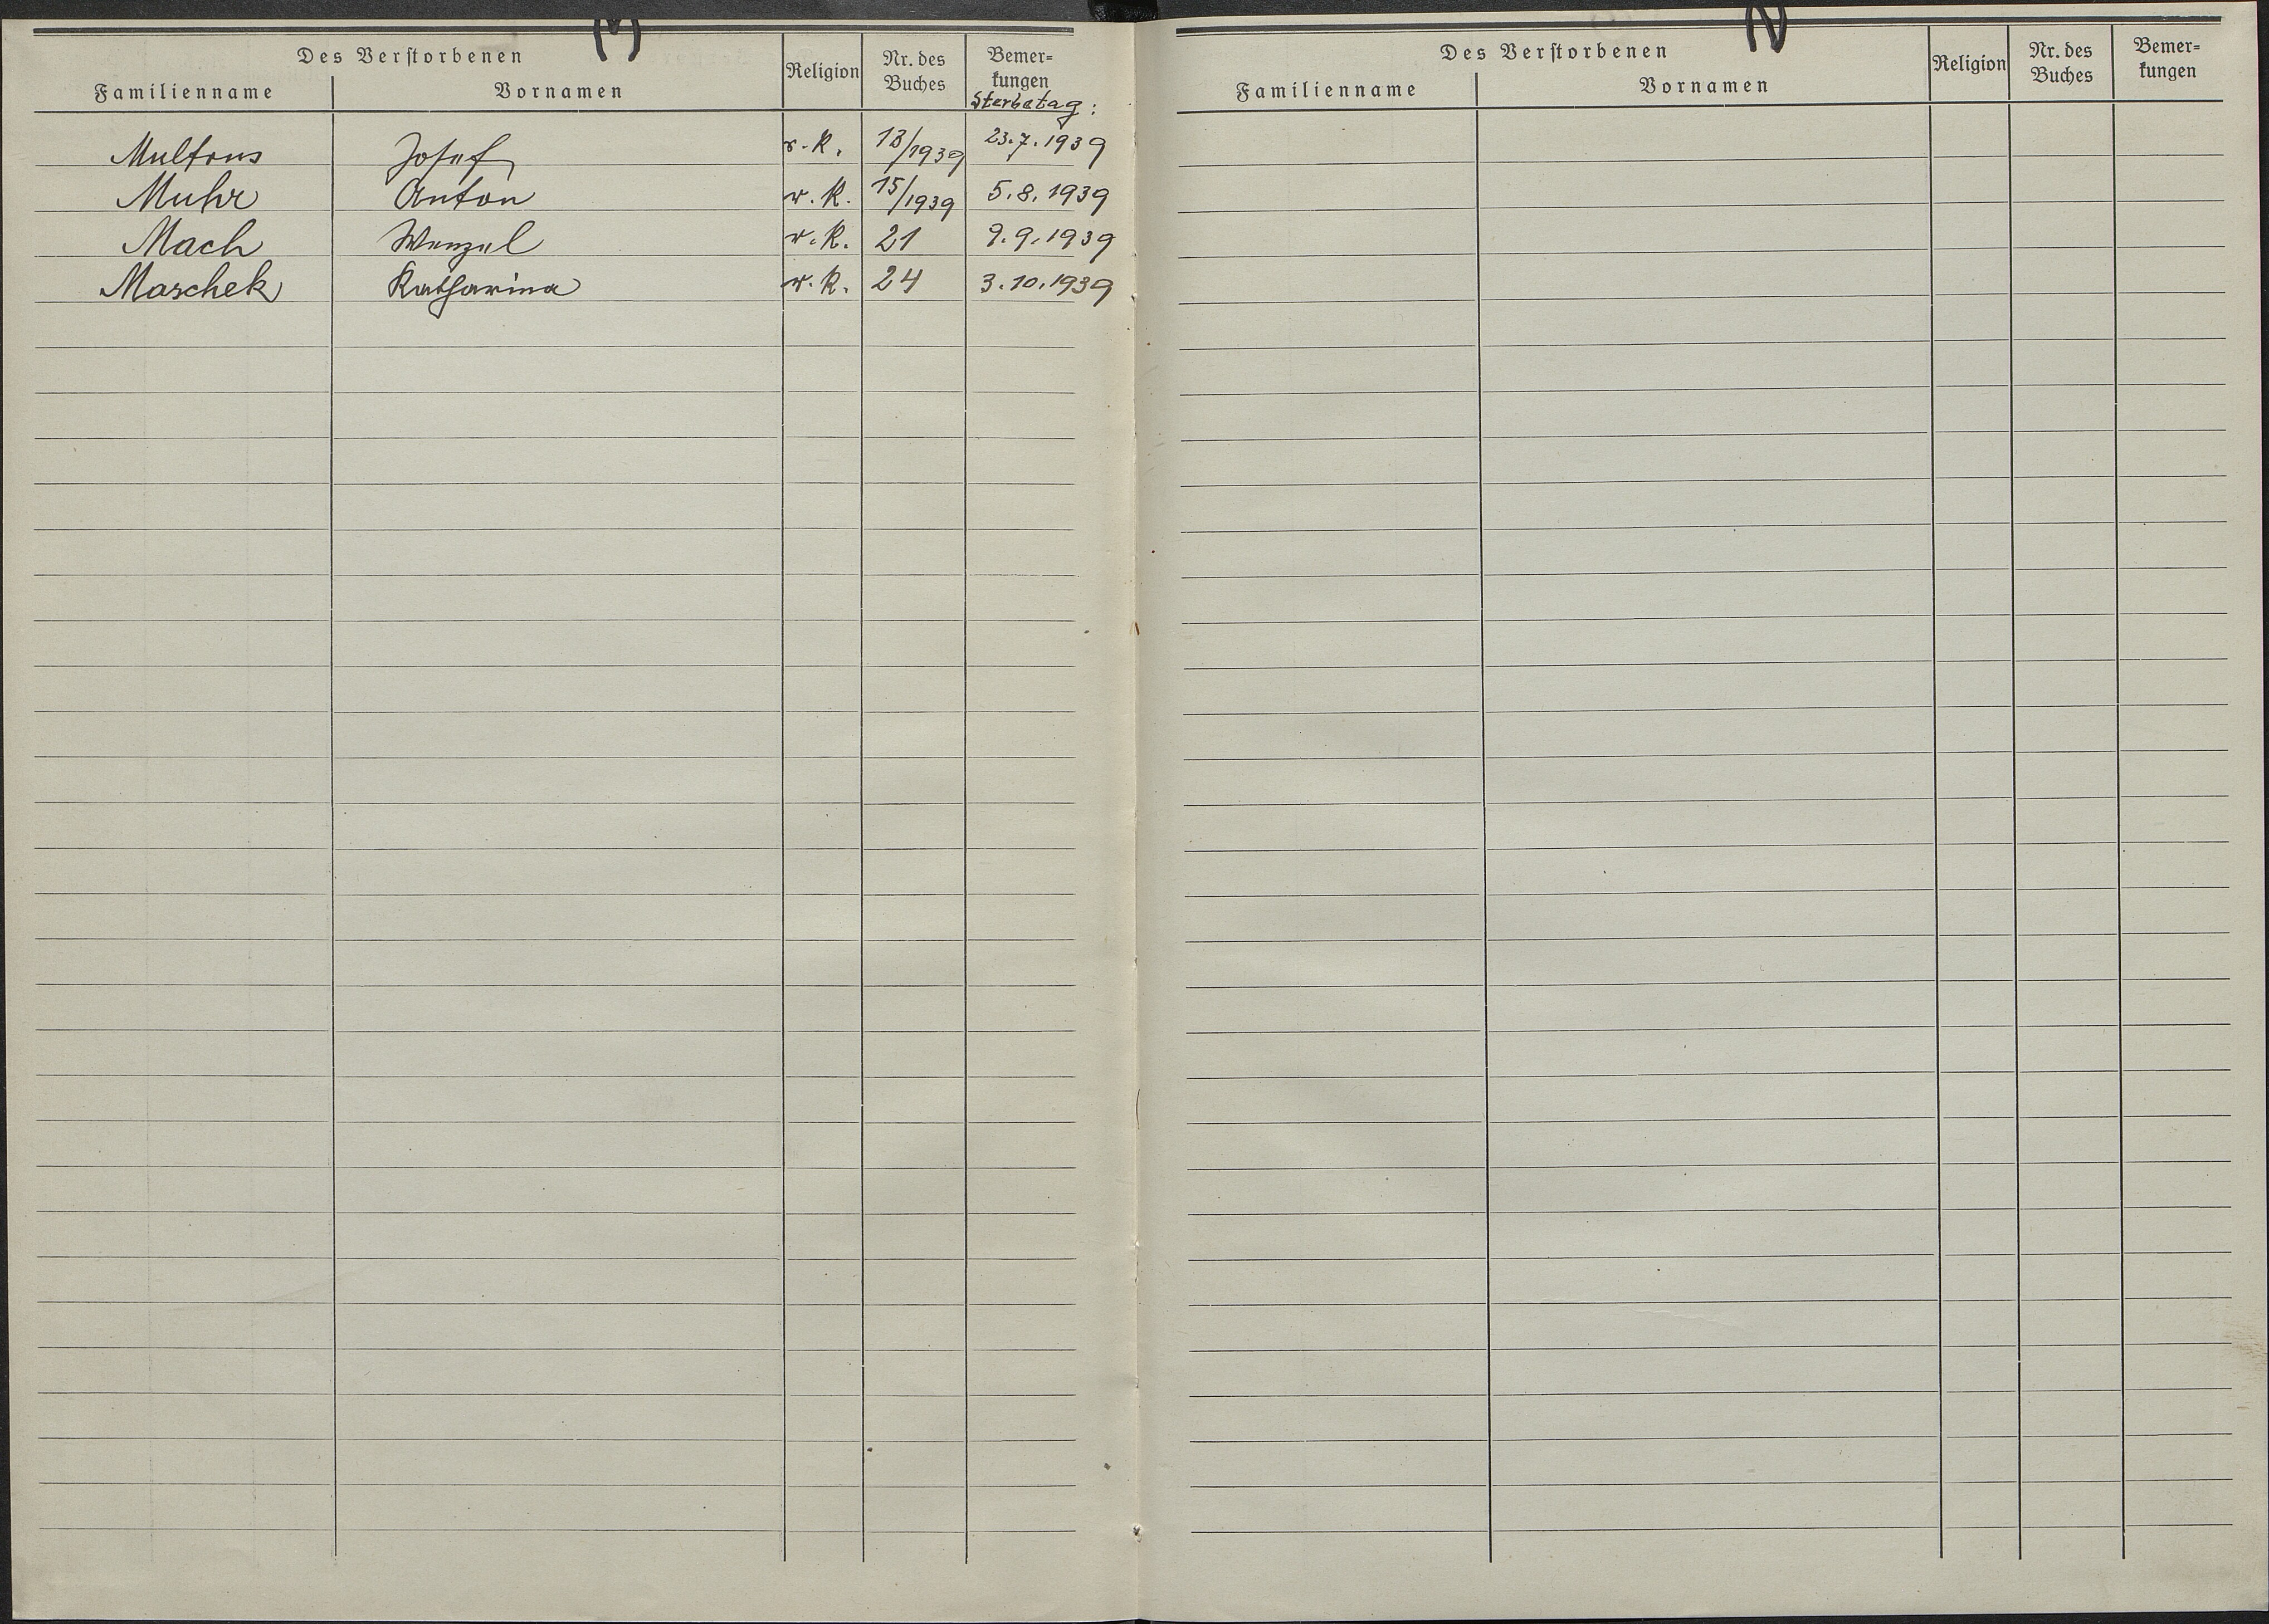 Des Verstorbenen
Familienname Vornamen Religion Nr. des Buches Bemer-kungen
Sterbetag:
Multrus Josef r.k. 13/1939 23.7.1939
Muhr Anton r.k. 15/1939 5.8.1939
Mach Wenzel r.k. 21 9.9.1939
Maschek Katharina r.k. 24 3.10.1939
N
Des Verstorbenen
Familienname Vornamen Religion Nr. des Buches Bemer-kungen